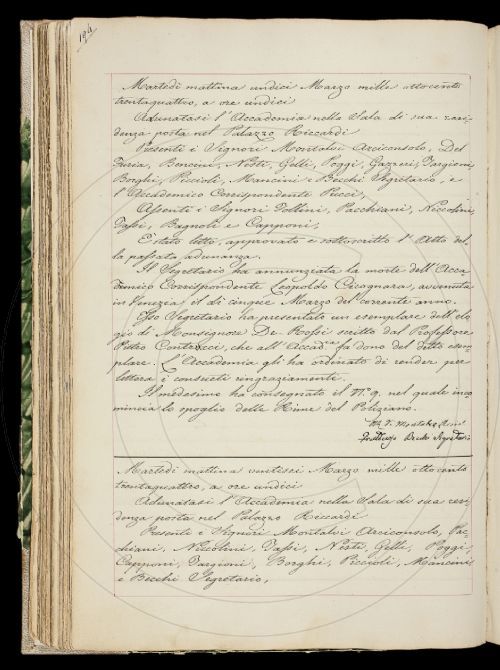 194
Martedì mattina undici Marzo mille ottocento
trentaquattro, a ore undici
Adunatasi l'Accademia nella Sala di sua resi=
denza posta nel Palazzo Riccardi
Presenti i Signori Montalvi Arciconsolo, Del
Furia, Bencini, Nesti, Gelli, Poggi, Gazzeri, Targioni,
Borghi, Piccioli, Mancini e Becchi Segretario, e
l'Accademico Corrispondente Pucci,
Assenti i Signori Follini, Pacchiani, Niccolini,
Tassi, Bagnoli e Capponi,
È stato letto, approvato e sottoscritto l'Atto del=
la passata adunanza.
Il Segretario ha annunziata la morte dell'Acca
demico Corrispondente Leopoldo Cicognara, avvenuta
in Venezia, il dì cinque Marzo del corrente anno.
Esso Segretario ha presentato un esemplare dell'elo
gio di Monsignore De Rossi scritto dal Professore
Pietro Contrucci, che all'Accad.a fa dono del detto esem=
plare. L'Accademia gli ha ordinato di render per
lettera i consueti ringraziamenti.
Il medesimo ha consegnato il N.o 9. nel quale inco=
mincia lo spoglio delle Rime del Poliziano.
Montalvi
Fruttuoso Becchi Segretario
Martedì mattina ventisei Marzo mille ottocento
trentaquattro, a ore undici
Adunatasi l'Accademia nella Sala di sua resi=
denza posta nel Palazzo Riccardi
Presenti i Signori Montalvi Arciconsolo, Pac=
chiani, Niccolini, Tassi, Nesti, Gelli, Poggi,
Capponi, Targioni, Borghi, Piccioli, Mancini
e Becchi Segretario,